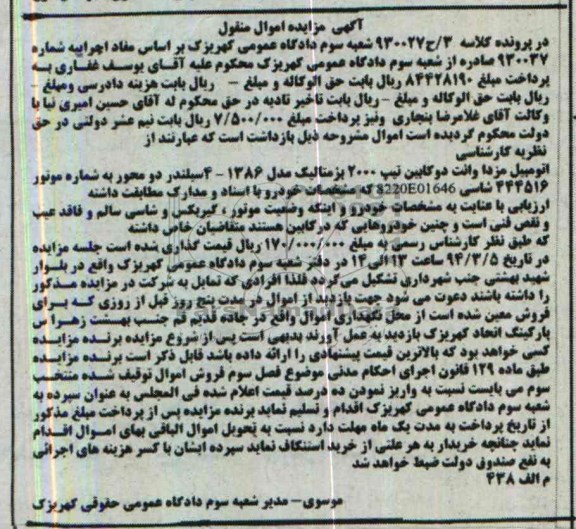 آگهی مزایده اموال منقول
در پرونده کلاسه ۳/ح۹۳۰۰۲۷ شعبه سوم دادگاه عمومی کهریزک بر اساس مفاد اجراییه شماره
۹۳۰۰۳۷ صادره از شعبه سوم دادگاه عمومی کهریزک محکوم علیه آقای یوسف غفاری به
پرداخت مبلغ ۸۴۴۲۸۱۹۰ ریال بابت حق الوکاله و مبلغ – ریال بابت هزینه دادرسی ومبلغ –
ریال بابت حق الوکاله و مبلغ – ریال بابت تاخیر تادیه در حق محکوم له آقای حسین امیری نیا با
وکالت آقای غلامرضا بنجاری ونیز پرداخت مبلغ ۷/۵۰۰/۰۰۰ ریال بابت نیم عشر دولتی در حق
دولت محکوم گردیده است اموال مشروحه ذیل بازداشت است که عبارتند از
نظریه کارشناسی
اتومبیل مزدا وانت دوکابین تیپ ۲۰۰۰ بژمتالیک مدل ۱۳۸۶ – ۴سیلندر دو محور به شماره موتور
۴۴۴۵۱۶ شاسی 8220E01646 که مشخصات خودرو با اسناد و مدارک مطابقت داشته
ارزیابی با عنایت به مشخصات خودرو و اینکه وضعیت موتور ، گیربکس و شاسی سالم و فاقد عیب
و نقص فنی است و چنین خودروهایی که درکابین هستند متقاضیان خاص داشته
که طبق نظر کارشناس رسمی به مبلغ ۱۷۰/۰۰۰/۰۰۰ ریال قیمت گذاری شده است جلسه مزایده
در تاریخ ۹۴/۳/۵ ساعت ۱۳ الی۱۴ در دفتر شعبه سوم دادگاه عمومی کهریزک واقع در بلوار
شهید بهشتی جنب شهرداری تشکیل می‌گردد فلذا افرادی که تمایل به شرکت در مزایده مذکور
را داشته باشند دعوت می شود جهت بازدید از اموال در مدت پنج روز قبل از روزی که برای
فروش معین شده است از محل نگهداری اموال واقع در جاده قدیم قم جنب بهشت زهرا س
پارکینگ اتحاد کهریزک بازدید به عمل آورند بدیهی است پس از شروع مزایده برنده مزایده
کسی خواهد بود که بالاترین قیمت پیشنهادی را ارائه داده باشد قابل ذکر است برنده مزایده
طبق ماده ۱۲۹ قانون اجرای احکام مدنی موضوع فصل سوم فروش اموال توقیف شده منتخب
سوم می بایست نسبت به واریز نمودن ده درصد قیمت اعلام شده فی المجلس به عنوان سپرده به
شعبه سوم دادگاه عمومی کهریزک اقدام و تسلیم نماید برنده مزایده پس از پرداخت مبلغ مذکور
از تاریخ پرداخت به مدت یک ماه مهلت دارد نسبت به تحویل اموال الباقی بهای اموال اقدام
نماید چنانچه خریدار به هر علتی از خرید استنکاف نماید سپرده ایشان با کسر هزینه های اجرائی
به نفع صندوق دولت ضبط خواهد شد
م الف ۴۳۸
موسوی – مدیر شعبه سوم دادگاه عمومی حقوقی کهریزک